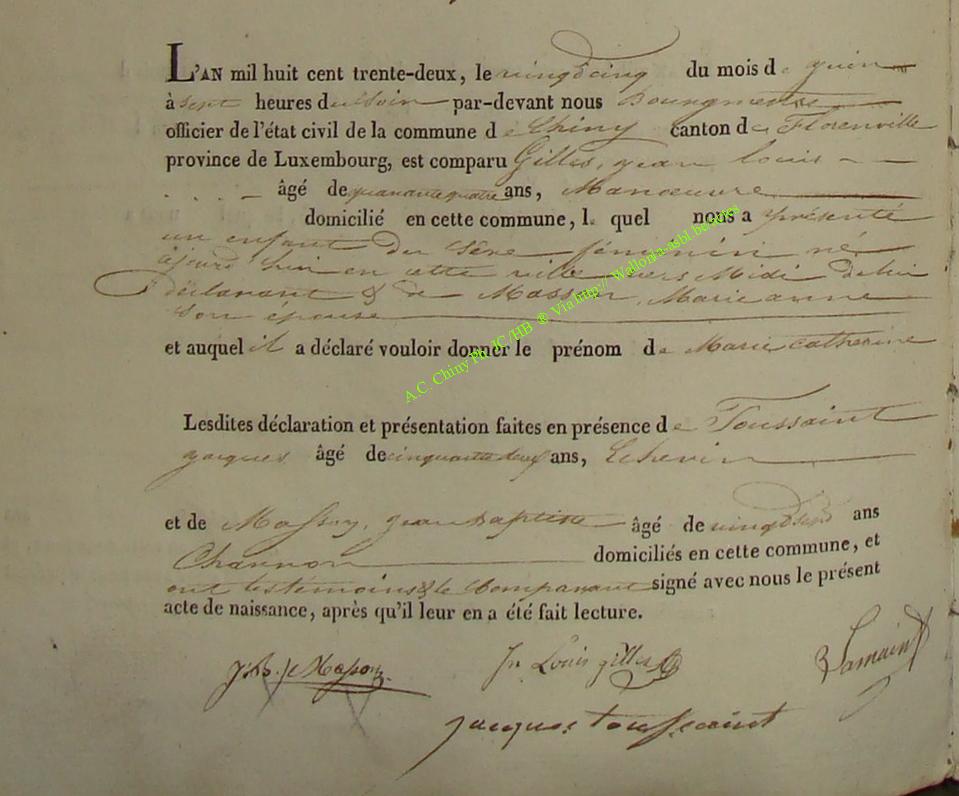 L'AN mil huit cent trente-deux, le vingtcinq du mois de juin
à sept heures du soir par-devant nous Bourgmestre
officier de l'état civil de la commune de Chiny canton de Florenville
province de Luxembourg, est comparu Gilles, jean louis
âgé de quarantequatre ans, Manoeuvre
domicilié en cette commune, lequel nous a présenté
un enfant du sexe féminin né
en cette ville vers Midi de lui
déclarant & de Masson, Marie anne
son epouse
et auquel il a déclaré vouloir donner le prénom de Marie Catherine
A.C. Chiny Ph. JC /HB ® Via http:// Wallonia-asbl.be
Lesdites déclaration et présentation faites en présence de Toussaint
jacques âgé de cinquante deux ans, Echevin
et de Masson, jean Baptiste âgé de vingt sept ans
Charron domiciliés en cette commune, et
ont les témoins & le Comparant signé avec nous le présent
acte de naissance, après qu'il leur en a été fait lecture.
J.B. Masson Jn Louis gilles
jacques toussaint